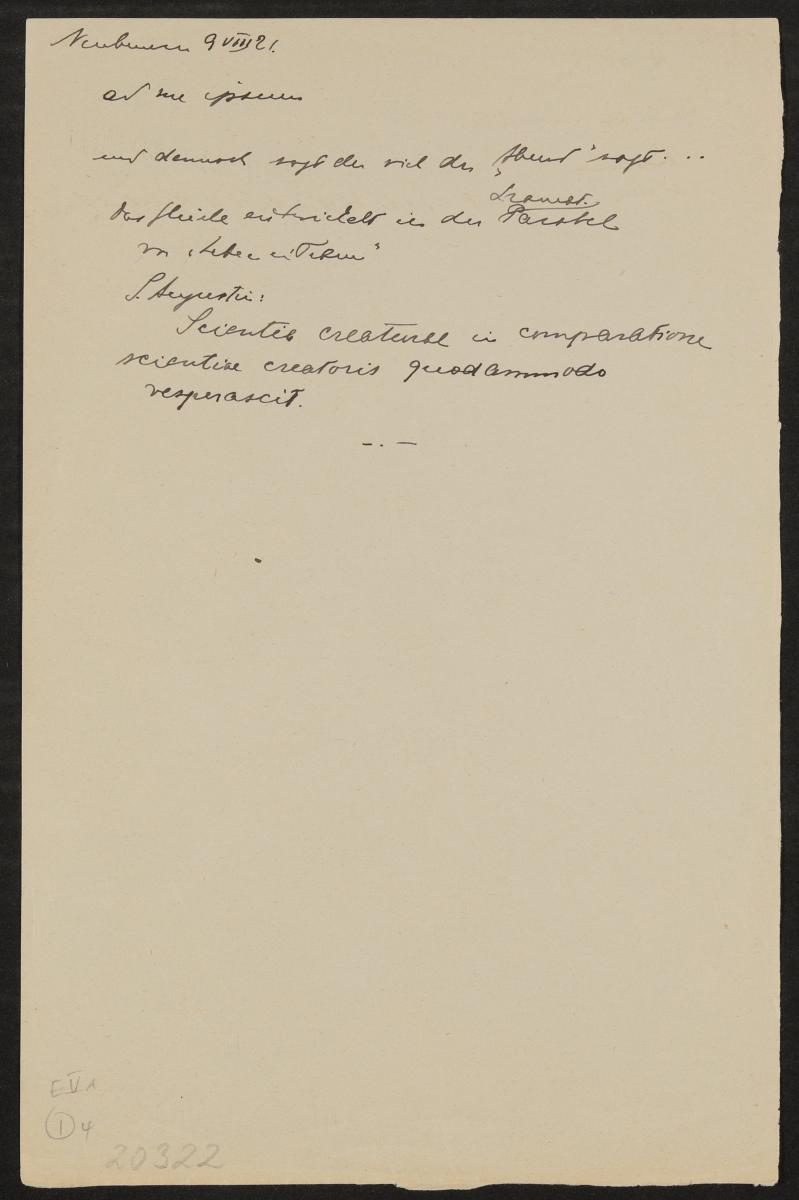 Neubeuern 9 VIII 21.
ad me ipsum
und dennoch sagt der viel der „Abend“ sagt...
Dramat.
das Gleiche entwickelt in der Parabel
von „Leben ein Traum“
S. Augustin:
Scientia creaturae in comparatione
scientiae creatoris quodammodo
vesperascit.
—.—
E V 1
I 4
20322